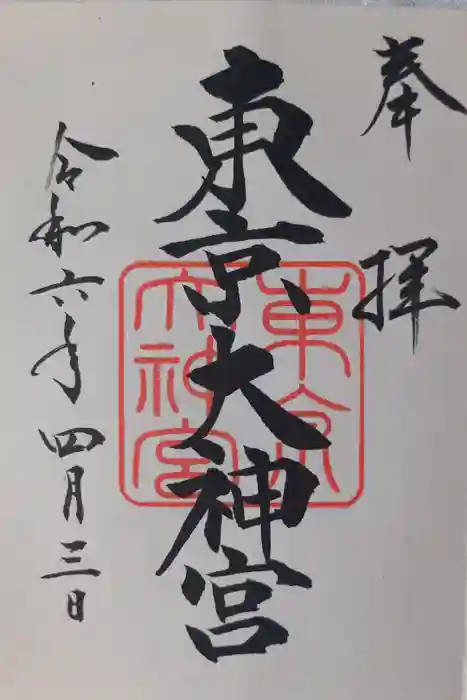 奉拝
東京大神宮
東京
大神宮
令和六年四月三日